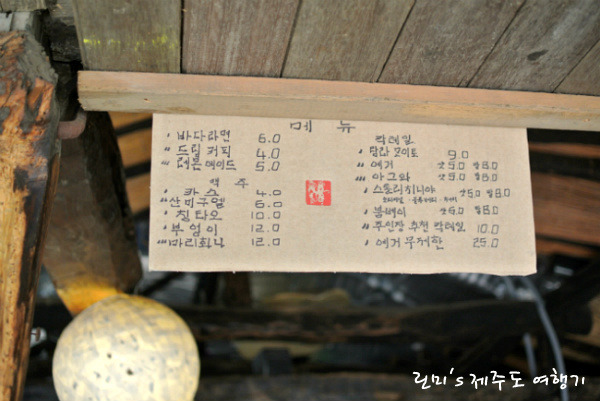 메뉴
바다라면 6.0
드립커피 4.0
레몬에이드 5.0
맥주
카스 4.0
산미구엘 6.0
칭타오 10.0
부엉이 12.0
마리화나 12.0
칵테일
탐라 모히또 9.0
예거 잔5.0 병8.0
아그와 잔5.0 병8.0
스톨리치나야 잔5.0 병8.0
봄베이 잔5.0 병8.0
주인장 추천 칵테일 10.0
예거 무제한 25.0
린미's 제주도 여행기